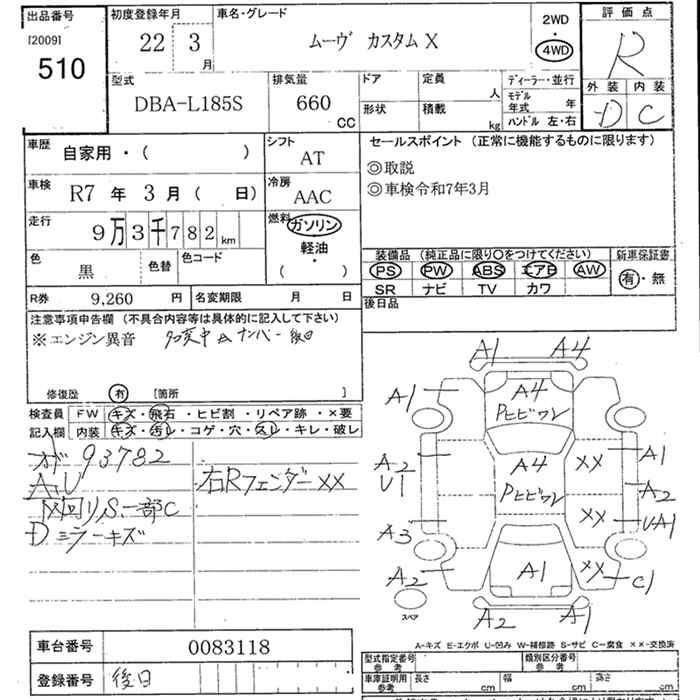 出品番号
[2009]
510
初度登録年月
22 3
月
車名・グレード
ムーヴ カスタム X
2WD
・
4WD
評価点
R
外装 内装
D C
型式
DBA-L185S
排気量
660
CC
ドア
形状
定員
人
積載
kg
ディーラー・並行
モデル
年式 年
ハンドル 左・右
車歴
自家用・( )
シフト
AT
車検
R7 年 3 月 ( 日)
冷房
AAC
走行
9 万 3 千 7 8 2 km
燃料
ガソリン
軽油
・
( )
色
黒
色替
色コード
R券
9,260 円
名変期限 月 日
セールスポイント (正常に機能するものに限ります)
◎取説
◎車検令和7年3月
装備品 (純正品に限り〇をつけてください)
新車保証書
PS PW ABS エアB AW
有・無
SR ナビ TV カワ
後日品
注意事項申告欄 (不具合内容等は具体的に記入して下さい)
※エンジン異音 名変中 ナンバー後日
修復歴 有 [箇所 ]
検査員 FW キズ・飛石・ヒビ割・リペア跡・×要
記入欄 内装 キズ・汚レ・コゲ・穴・スレ・キレ・破レ
メ 93782
AU
下回りS一部C
Dミラーキズ
右Rフェンダー××
A1 A4
A1
A4
Pヒビワレ
A2
U1
A4
Pヒビワレ
×× A1
A2
×× UA1
A3
A2
A1
××
C1
スペア
A2 A1
A-キズ E-エクボ U-凹み W-補修跡 S-サビ C-腐食 ××-交換済
車台番号
0083118
登録番号
後日
型式指定番号
参考
類別区分番号
参考
車庫証明用
参考
長さ
cm
幅
cm
高さ
cm